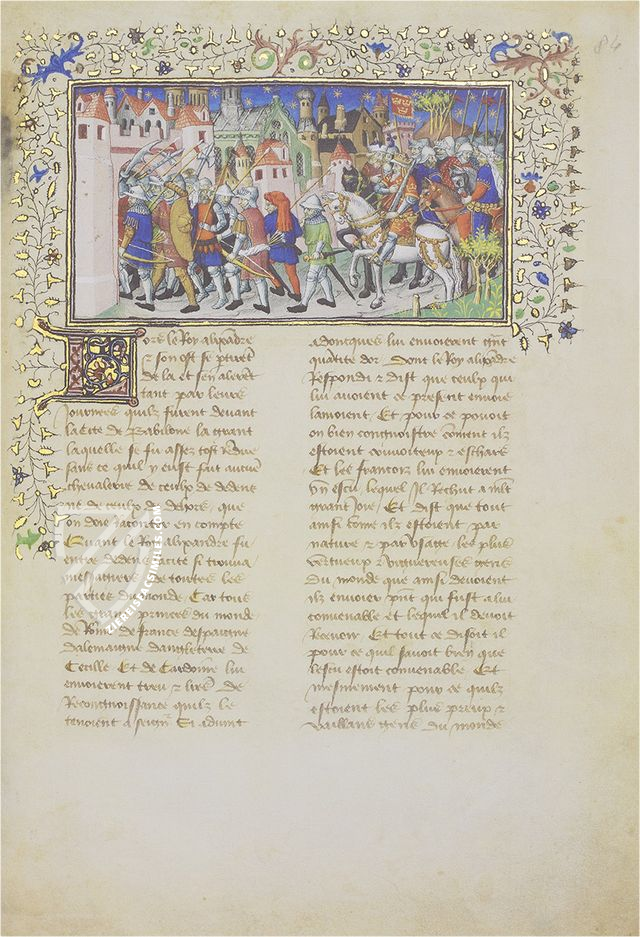 84
Lors le Roy alixadre
& son ost se ptiret
de la et sen alerēt
tant par leurs
Journees quilz furent devant
la cite de Babilone la grant
laquelle se fu assez tost Rendue
sans ce quil y eust fait aucuñ
chevalerie de ceulp de dedens
ne de ceulp de
que
on doie raconter en compte
Quant le Roy alixandre fu
entre dedens la cite si trouva
messagiers de toutes les
parties du monde Car tous
les grans princes du monde
de Rōme de france despaigne
dalemaigne dangleterre de
Cecille Et de Sardonne lui
envoierent treu & lires De
Recongnoissance quilz le
tenoient a seignr Si advint
adoncques lui envoierent grant
quatite dor Dont le Roy alixadre
Respondi & dist que ceulp qui
lui avoient ce present envoie
lamoient Et pour ce povoit
on bien congnoistre coment ilz
estoient convoiteup & eschars
Et les francois lui envoierent
Vn escu lequel Il Rechut a mlt
grant Joie Et dist que tout
ainsi come ilz estoient par
nature & par usage les plus
vertueup & viguereuses gens
Du monde que ainsi devoient
ilz envoier pnt qui fust a lui
convenable et lequel il devoit
Recevoir Et tout ce disoit il
pour ce quil savoit bien que
lescu estoit convenable Et
mesmement pour ce quilz
estoient les plus preup &
vaillans gens du monde
ZIEREIS FACSIMILES